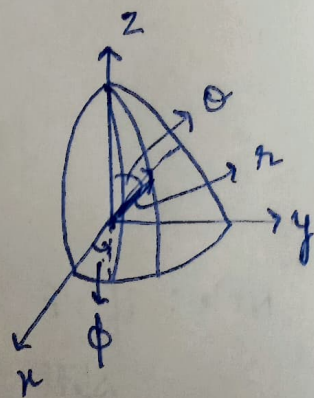 z
θ
r
y
ϕ
x